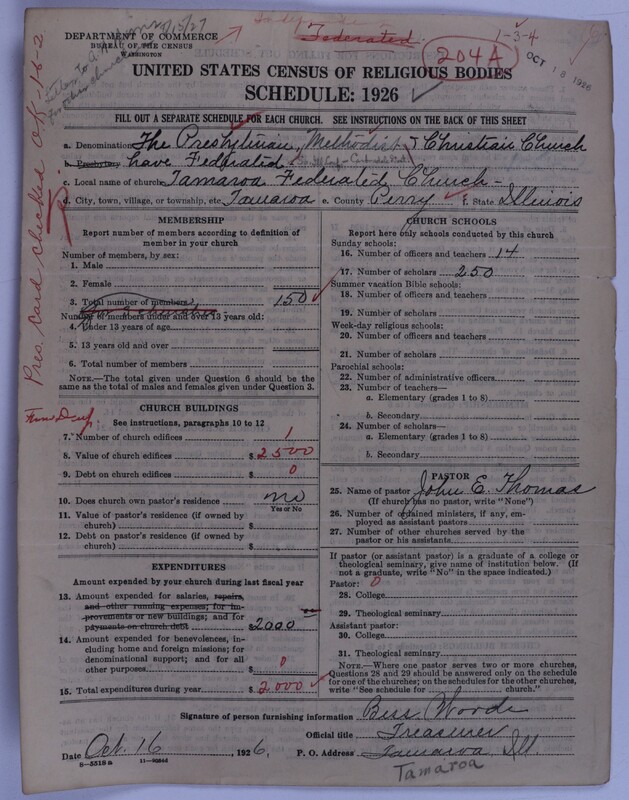 Federated
1-3-4
DEPARTMENT OF COMMERCE
BUREAU OF THE CENSUS
WASHINGTON
204A
OCT 18 1926
UNITED STATES CENSUS OF RELIGIOUS BODIES
SCHEDULE: 1926
FILL OUT A SEPARATE SCHEDULE FOR EACH CHURCH. SEE INSTRUCTIONS ON THE BACK OF THIS SHEET
a. Denomination The Presbyterian, Methodist & Christian Church
b. Presbytery have Fedrated
c. Local name of church Tamaroa Federated Church
d. City, town, village, or township, etc. Tamaroa e. County Perry f. State Illinois
Pres. card checked OK 16-2
MEMBERSHIP
Report number of members according to definition of
member in your church
Number of members, by sex:
1. Male
2. Female
3. Total number of members 150
Number of members under and over 13 years old:
4. Under 13 years of age
5. 13 years old and over
6. Total number of members
NOTE.—The total given under Question 6 should be the
same as the total of males and females given under Question 3.
CHURCH BUILDINGS
See instructions, paragraphs 10 to 12
7. Number of church edifices 1
8. Value of church edifices $ 2500
9. Debt on church edifices $ 0
10. Does church own pastor's residence no
Yes or No
11. Value of pastor's residence (if owned by
church) $
12. Debt on pastor's residence (if owned by
church) $
EXPENDITURES
Amount expended by your church during last fiscal year
13. Amount expended for salaries, repairs,
and other running expenses; for im-
provements or new buildings; and for
payments on church debt $ 2000
14. Amount expended for benevolences, in-
cluding home and foreign missions; for
denominational support; and for all
other purposes $ 0
15. Total expenditures during year $ 2000
CHURCH SCHOOLS
Report here only schools conducted by this church
Sunday schools:
16. Number of officers and teachers 14
17. Number of scholars 250
Summer vacation Bible schools:
18. Number of officers and teachers
19. Number of scholars
Week-day religious schools:
20. Number of officers and teachers
21. Number of scholars
Parochial schools:
22. Number of administrative officers
23. Number of teachers—
a. Elementary (grades 1 to 8)
b. Secondary
24. Number of scholars—
a. Elementary (grades 1 to 8)
b. Secondary
PASTOR
25. Name of pastor John E. Thomas
(If church has no pastor, write "None")
26. Number of ordained ministers, if any, em-
ployed as assistant pastors
27. Number of other churches served by the
pastor or his assistants
If pastor (or assistant pastor) is a graduate of a college or
theological seminary, give name of institution below. (If
not a graduate, write "No" in the space indicated.)
Pastor: 0
28. College
29. Theological seminary
Assistant pastor:
30. College
31. Theological seminary
NOTE.—Where one pastor serves two or more churches,
Questions 28 and 29 should be answered only on the schedule
for one of the churches; on the schedules for the other churches,
write "See schedule for church."
Signature of person furnishing information Bess Woods
Official title Treasurer
Date Oct. 16 1926. P. O. Address Tamaroa Ill.
8-5318a
Tamaroa